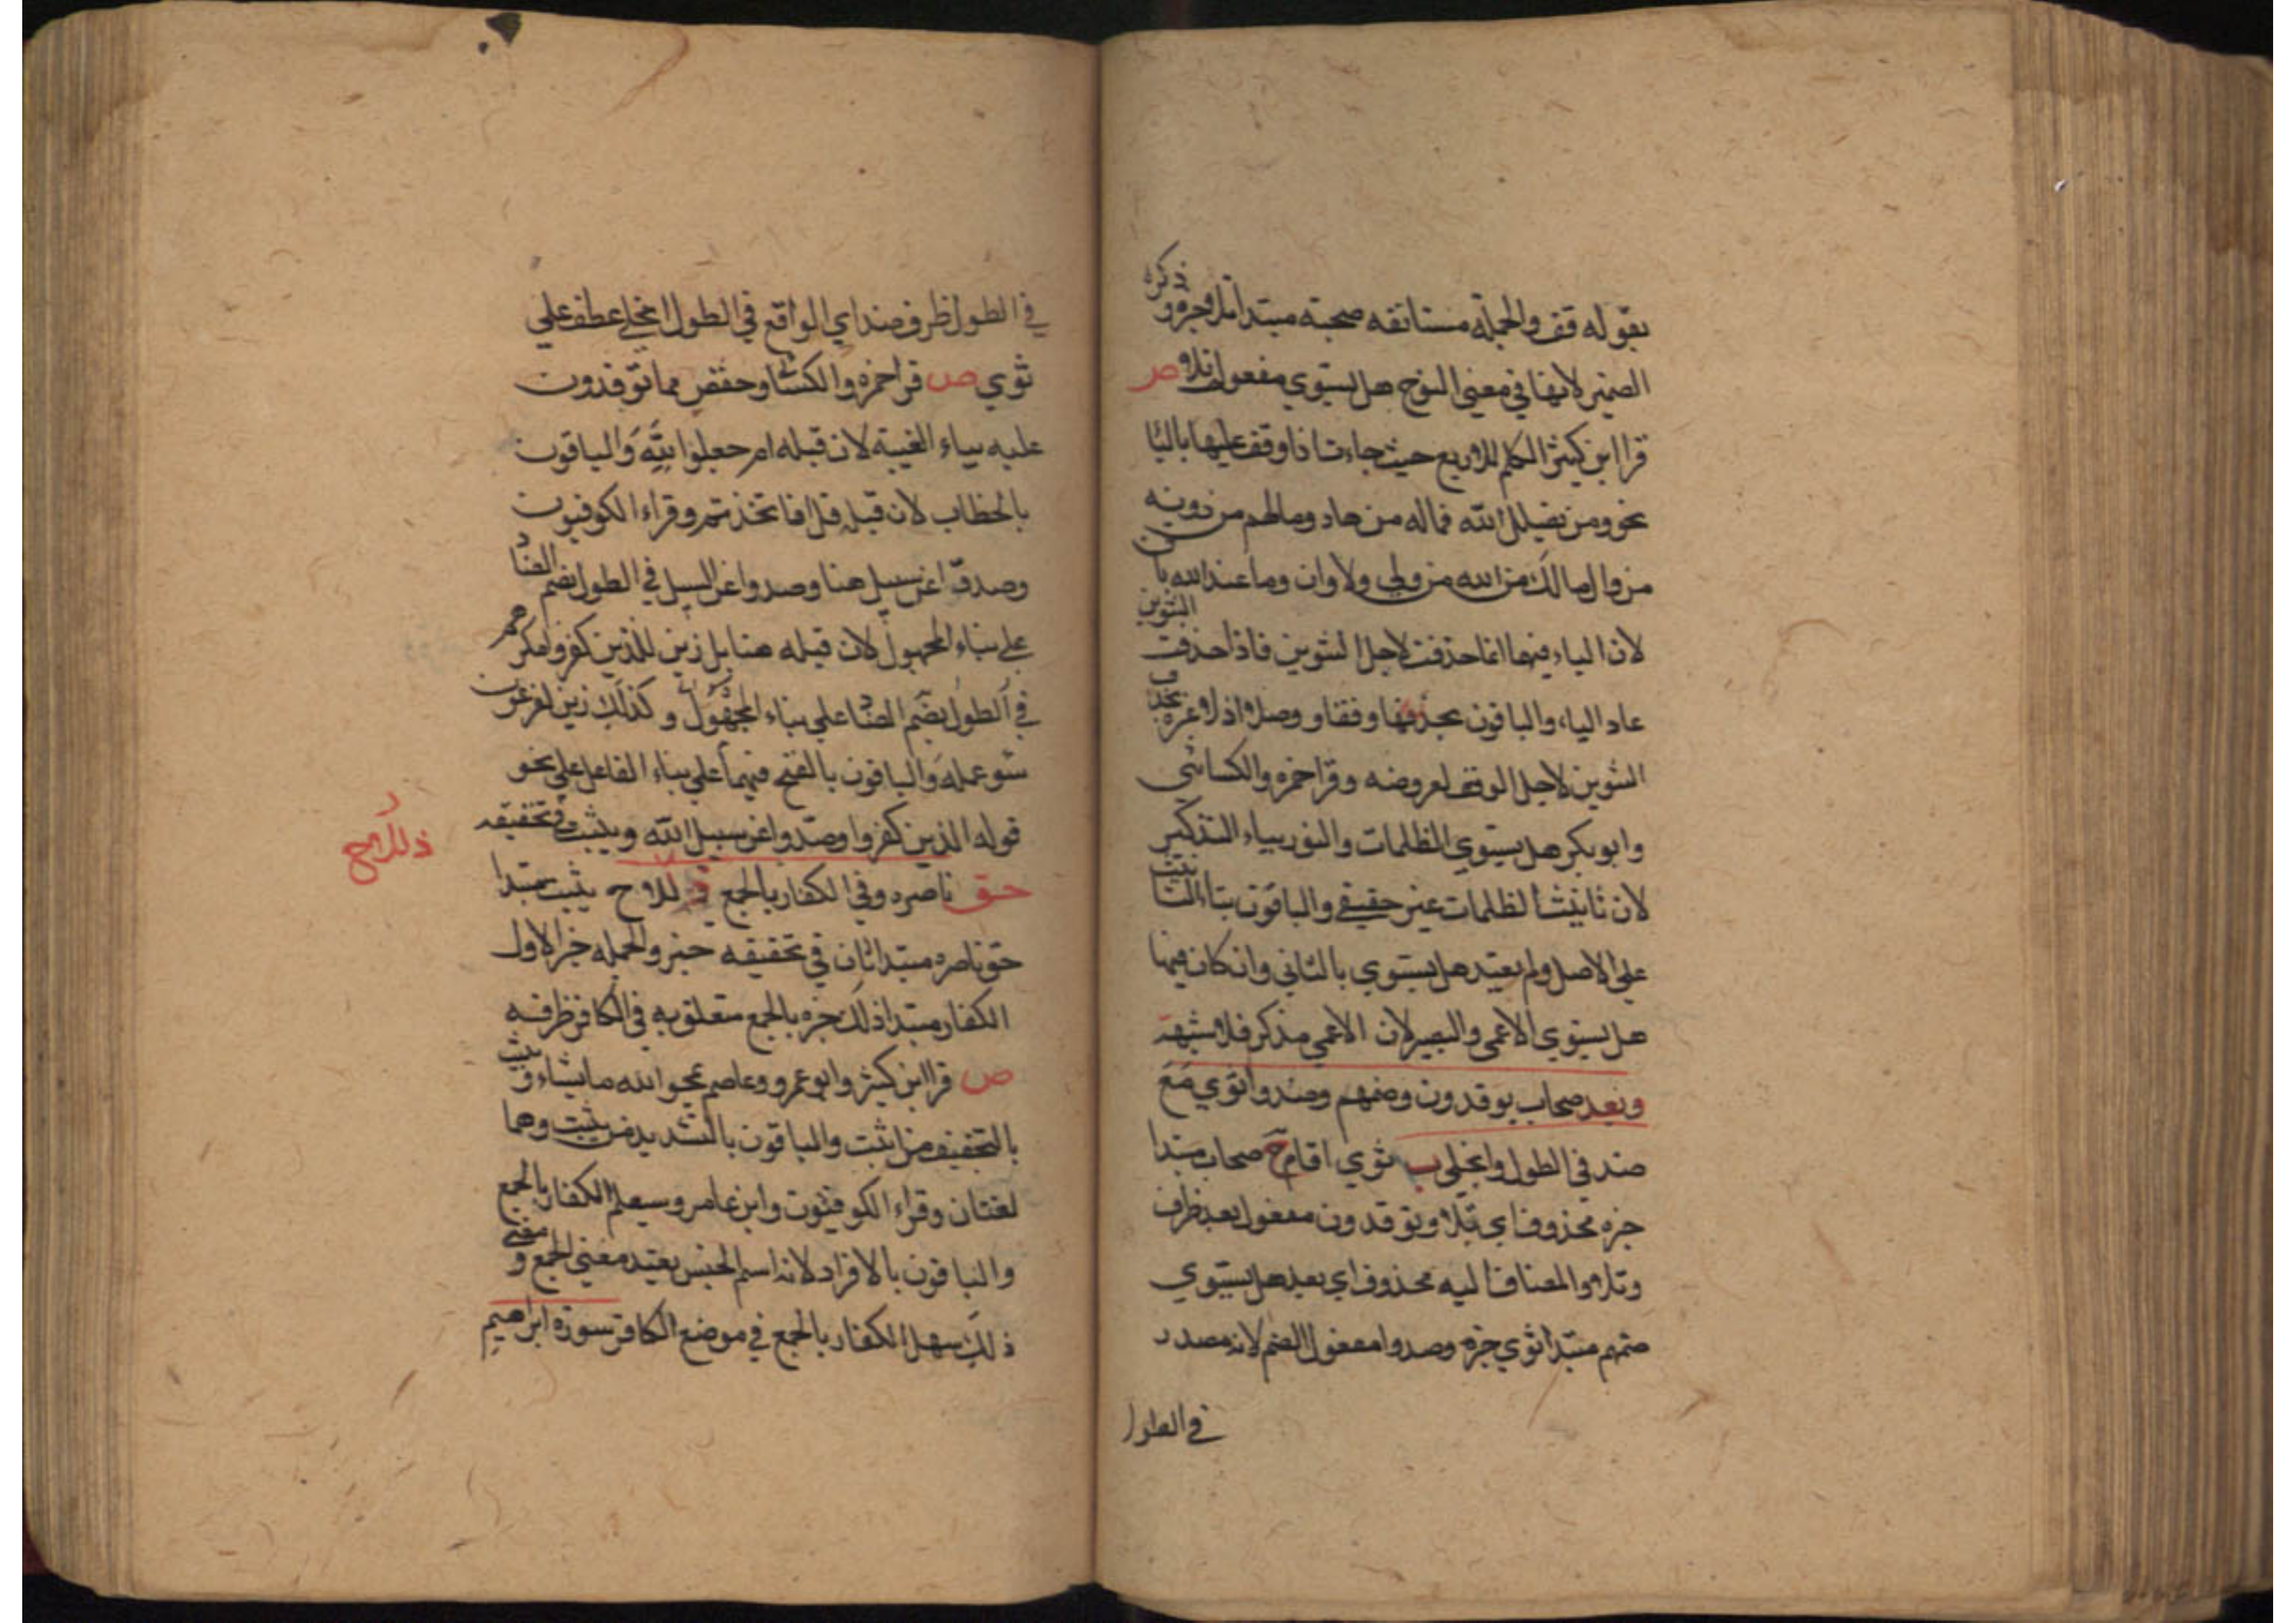 بقوله قف والجملة مستانفه صحبته مبتدا تلا وخبره وذكره
الضمير لانها في معنى الفوج هل يستوي مفعول تلا ص
قرا ابن كثير الكلم الاربع حيث جاءت اذا وقف عليها باليا
نحو ومن يضلل الله فماله من هاد ومالهم من دونه
من وال مالك من الله من ولي ولا وان وما عند الله باق
لان الياء فيها انما حذفت لاجل التنوين فاذا حذفت التنوين
عاد الياء والباقون بحذفها وقفا ووصلا اذ لا عبره بحذف
التنوين لاجل الوقف لعروضه وقرا حمزه والكسائي
وابو بكر هل يستوي الظلمات والنور بياء التذكير
لان تانيث الظلمات غير حقيقي والباقون بتاء التانيث
على الاصل ولم يقيد هل يستوي بالثاني وان كان فيها
هل يستوي الاعمى والبصير لان الاعمى مذكر فلا شبهة
وبعد صحاب يوقدون وضمهم وصدوا ثوي مع
صد في الطول وانجلى ب ثوي اقام ح صحاب مبتدا
خبره محذوف اي تلا ويوقدون مفعول بعد ظرف
وتلا والمضاف اليه محذوف اي بعد هل يستوي
ضمهم مبتدا ثوي خبره وصدوا مفعول الضم لانه مصدر
في الطول
في الطول ظرف صد اي الواقع في الطول انجلى عطف على
ثوي ص قرا حمزه والكسا وحفص مما توقدون
عليه بياء الغيبة لان قبله ام جعلوا لله والباقون
بالخطاب لان قبله قل افاتخذتم وقراء الكوفيون
وصدوا عن سبيل هنا وصدوا عن السبيل في الطول بضم الصاد
على بناء المجهول لان قبله هنا بل زين للذين كفروا مكرهم
في الطول بضم الصاد على بناء المجهول وكذلك زين لفرعون
سوء عمله والباقون بالفتح فيهما على بناء الفاعل على نحو
قوله الذين كفروا وصدوا عن سبيل الله ويثبت في تخفيفه
حق ناصره وفي الكفار بالجمع ذللا ح يثبت مبتدا
ذللا ح
حق ناصره مبتدا ثان في تخفيفه خبر والجمله خبر الاول
الكفار مبتدا ذلك خبره بالجمع متعلق به في الكافر ظرفه
ص قرا ابن كثير وابو عمرو وعاصم يمحو الله ما يشاء ويثبت
بالتخفيف من اثبت والباقون بالتشديد من يثبت وهما
لغتان وقراء الكوفيون وابن عامر وسيعلم الكفار بالجمع
والباقون بالافراد لانه اسم الجنس يفيد معنى الجمع ومعنى
ذلك سهل الكفار بالجمع في موضع الكافر سورة ابرهيم